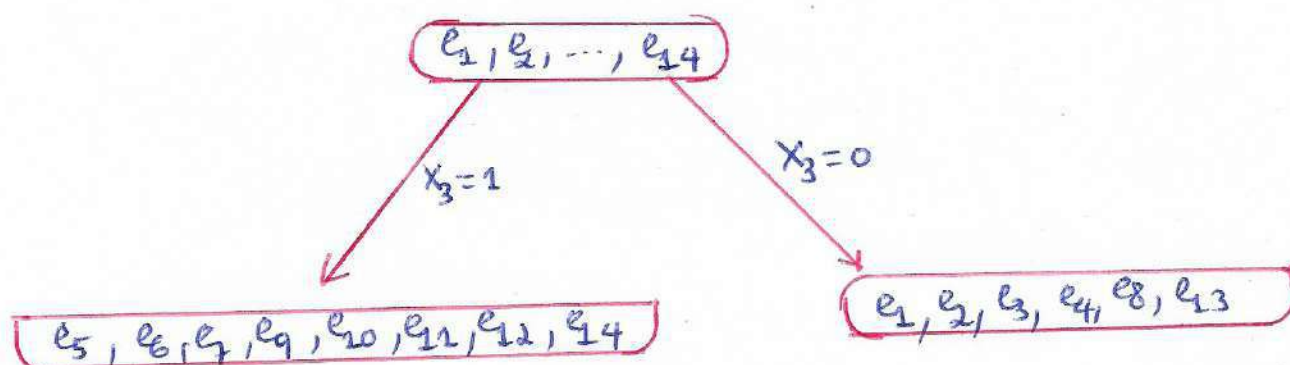 e₁, e₂, ..., e₁₄
X₃=1
X₃=0
e₅, e₆, e₇, e₉, e₁₀, e₁₁, e₁₂, e₁₄
e₁, e₂, e₃, e₄, e₈, e₁₃